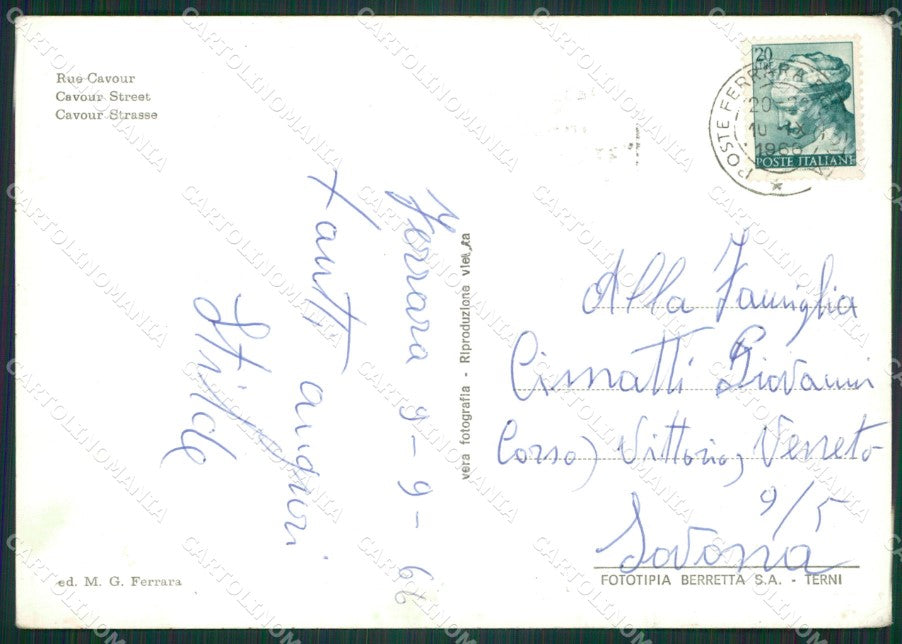 Rue Cavour
Cavour Street
Cavour Strasse
Ferrara 9-9-66
Tanti auguri
vera fotografia - Riproduzione vietata
20
POSTE FERRARA
1966
POSTE ITALIANE
Alla Famiglia
Cimatti Giovanni
Corso) Vittorio, Veneto
9/5
Savona
ed. M. G. Ferrara
FOTOTIPIA BERRETTA S.A. - TERNI
CARTOLINOMANIA